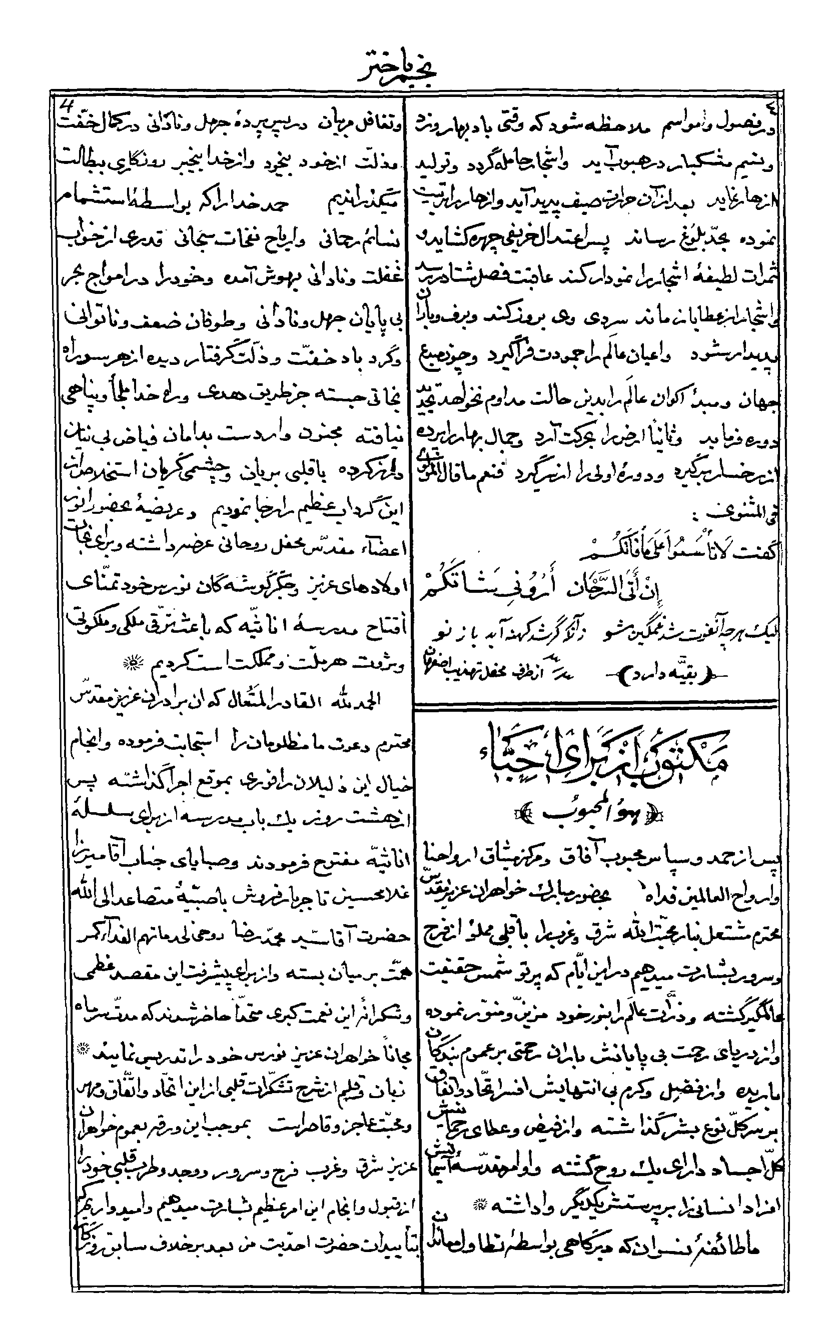 نجم باختر
٤
4
در فصول و مواسم ملاحظه شود که وقتی باد بهار وزد
و نسیم مشکبار در هبوب آید و اشجار حامله گردد و تولید
ازهار نماید بعد از آن حرارت صیف پدید آید و ازهار را تربیت
نموده بحدّ بلوغ رساند پس اعتدال خریفی چهره گشاید و
ثمرات لطیفهٔ اشجار را نمودار کند عاقبت فصل شتا در رسد
و اشجار از عطایا باز ماند سردی وی بروز کند و برف و باران
پدیدار شود و اعیان عالم را جمودت فراگیرد و چون مبدع
جهان و مبدء اکوان عالم را بدین حالت مداوم نخواهد تجدید
دوره فرماید و ثانیاً ارض را بحرکت آرد و جمال بهار را پرده
از رخسار برگیرد و دورهٔ اولی را از سر گیرد فنعم ما قال
فی المثنوی :
گفت لا تأسوا علی ما فاتکم
ان أتی السرحان أرونی شاتکم
لیک هر چه آنفوت شد غمگین مشو زآنکه گر شد کهنه آید باز نو
(بقیّه دارد) از طرف محفل تهذیب اصفهان
مکتوب از برای احبّاء
﴿ هو المحبوب ﴾
پس از حمد و سپاس محبوب آفاق و مرکز میثاق ارواحنا
و ارواح العالمین فداه بحضور مبارک خواهران عزیز مقدّس
محترم مشتعل بنار محبّة الله شرق و غرب را با قلبی مملو از فرح
و سرور بشارت میدهیم در این ایّام که پرتو شمس حقیقت
عالمگیر گشته و ذرّات عالم را بنور خود مزیّن و منوّر نموده
و از دریای رحمت بی پایانش باران رحمتی بر عموم بندگان
باریده و از فضل و کرم بی انتهایش افسر اتّحاد و اتّفاق
بر سر کلّ نوع بشر گذاشته و از فیض و عطای رحمانیش
کلّ اجساد دارای یک روح گشته و اوامر مقدّسهٔ آسمانیش
افراد انسانی را بر پرستش یکدیگر واداشته *
ما طائفهٔ نسوان که دیرگاهی بواسطهٔ تطاول
و تغافل مربیان در پس پردهٔ جهل و نادانی در کمال خفّت
و مذلّت از خود بیخود و از خدا بیخبر روزگاری ببطالت
میگذراندیم حمد خدا را که بواسطهٔ استشمام
نسائم رحمانی و اریاح نفحات سبحانی قدری از خواب
غفلت و نادانی بهوش آمده و خود را در امواج بحر
بی پایان جهل و نادانی و طوفان ضعف و ناتوانی
و گرد باد خفّت و ذلّت گرفتار دیده از هر سو راه
نجاتی جسته جز طریق هدی و راه خدا ملجأ و پناهی
نیافته مجنون وار دست بدامان فیاض بی نیازی
دراز کرده با قلبی بریان و چشمی گریان استخلاص از
این گرداب عظیم را رجا نمودیم و عریضهٔ بحضور انور
اعضاء مقدّس محفل روحانی عرضه داشته و برای نجات
اولادهای عزیز و جگر گوشه گان نورس خود تمنّای
افتتاح مدرسهٔ اناثیّه که باعث ترقی ملکی و ملکوتی
و ثروت هر ملّت و مملکت است کردیم *
الحمد لله القادر المتعال که ان برادران عزیز مقدّس
محترم دعوت ما مظلومان را استجابت فرموده و انجام
خیال این ذلیلان را فوری بموقع اجرا گذاشته پس
از هشت روز یک باب مدرسه از برای سلسلهٔ
اناثیّه مفتوح فرمودند و صبایای جناب آقا میرزا
غلامحسین تاجر بارفروش با صبیّهٔ متصاعد الی الله
حضرت آقا سیّد محمّد رضا روحی لدمائهم الفداء کمر
همّت بر میان بسته و از برای پیشرفت این مقصد عظمی
و شکرانهٔ این نعمت کبری متّحداً حاضر شدند که مدّت سه ماه
مجاناً خواهران عزیز نورس خود را تدریس نمایند *
زبان و قلم از شرح تشکّرات قلبی از این اتّحاد و اتّفاق و مهر
و محبّت عاجز و قاصر است بموجب این ورقه بعموم خواهران
عزیز شرق و غرب فرح و سرور و وجد و طرب قلبی خود را
از قبول و انجام این امر عظیم بشارت میدهیم و امیدواریم که
بتأییدات حضرت احدیّت من بعد بر خلاف سابق